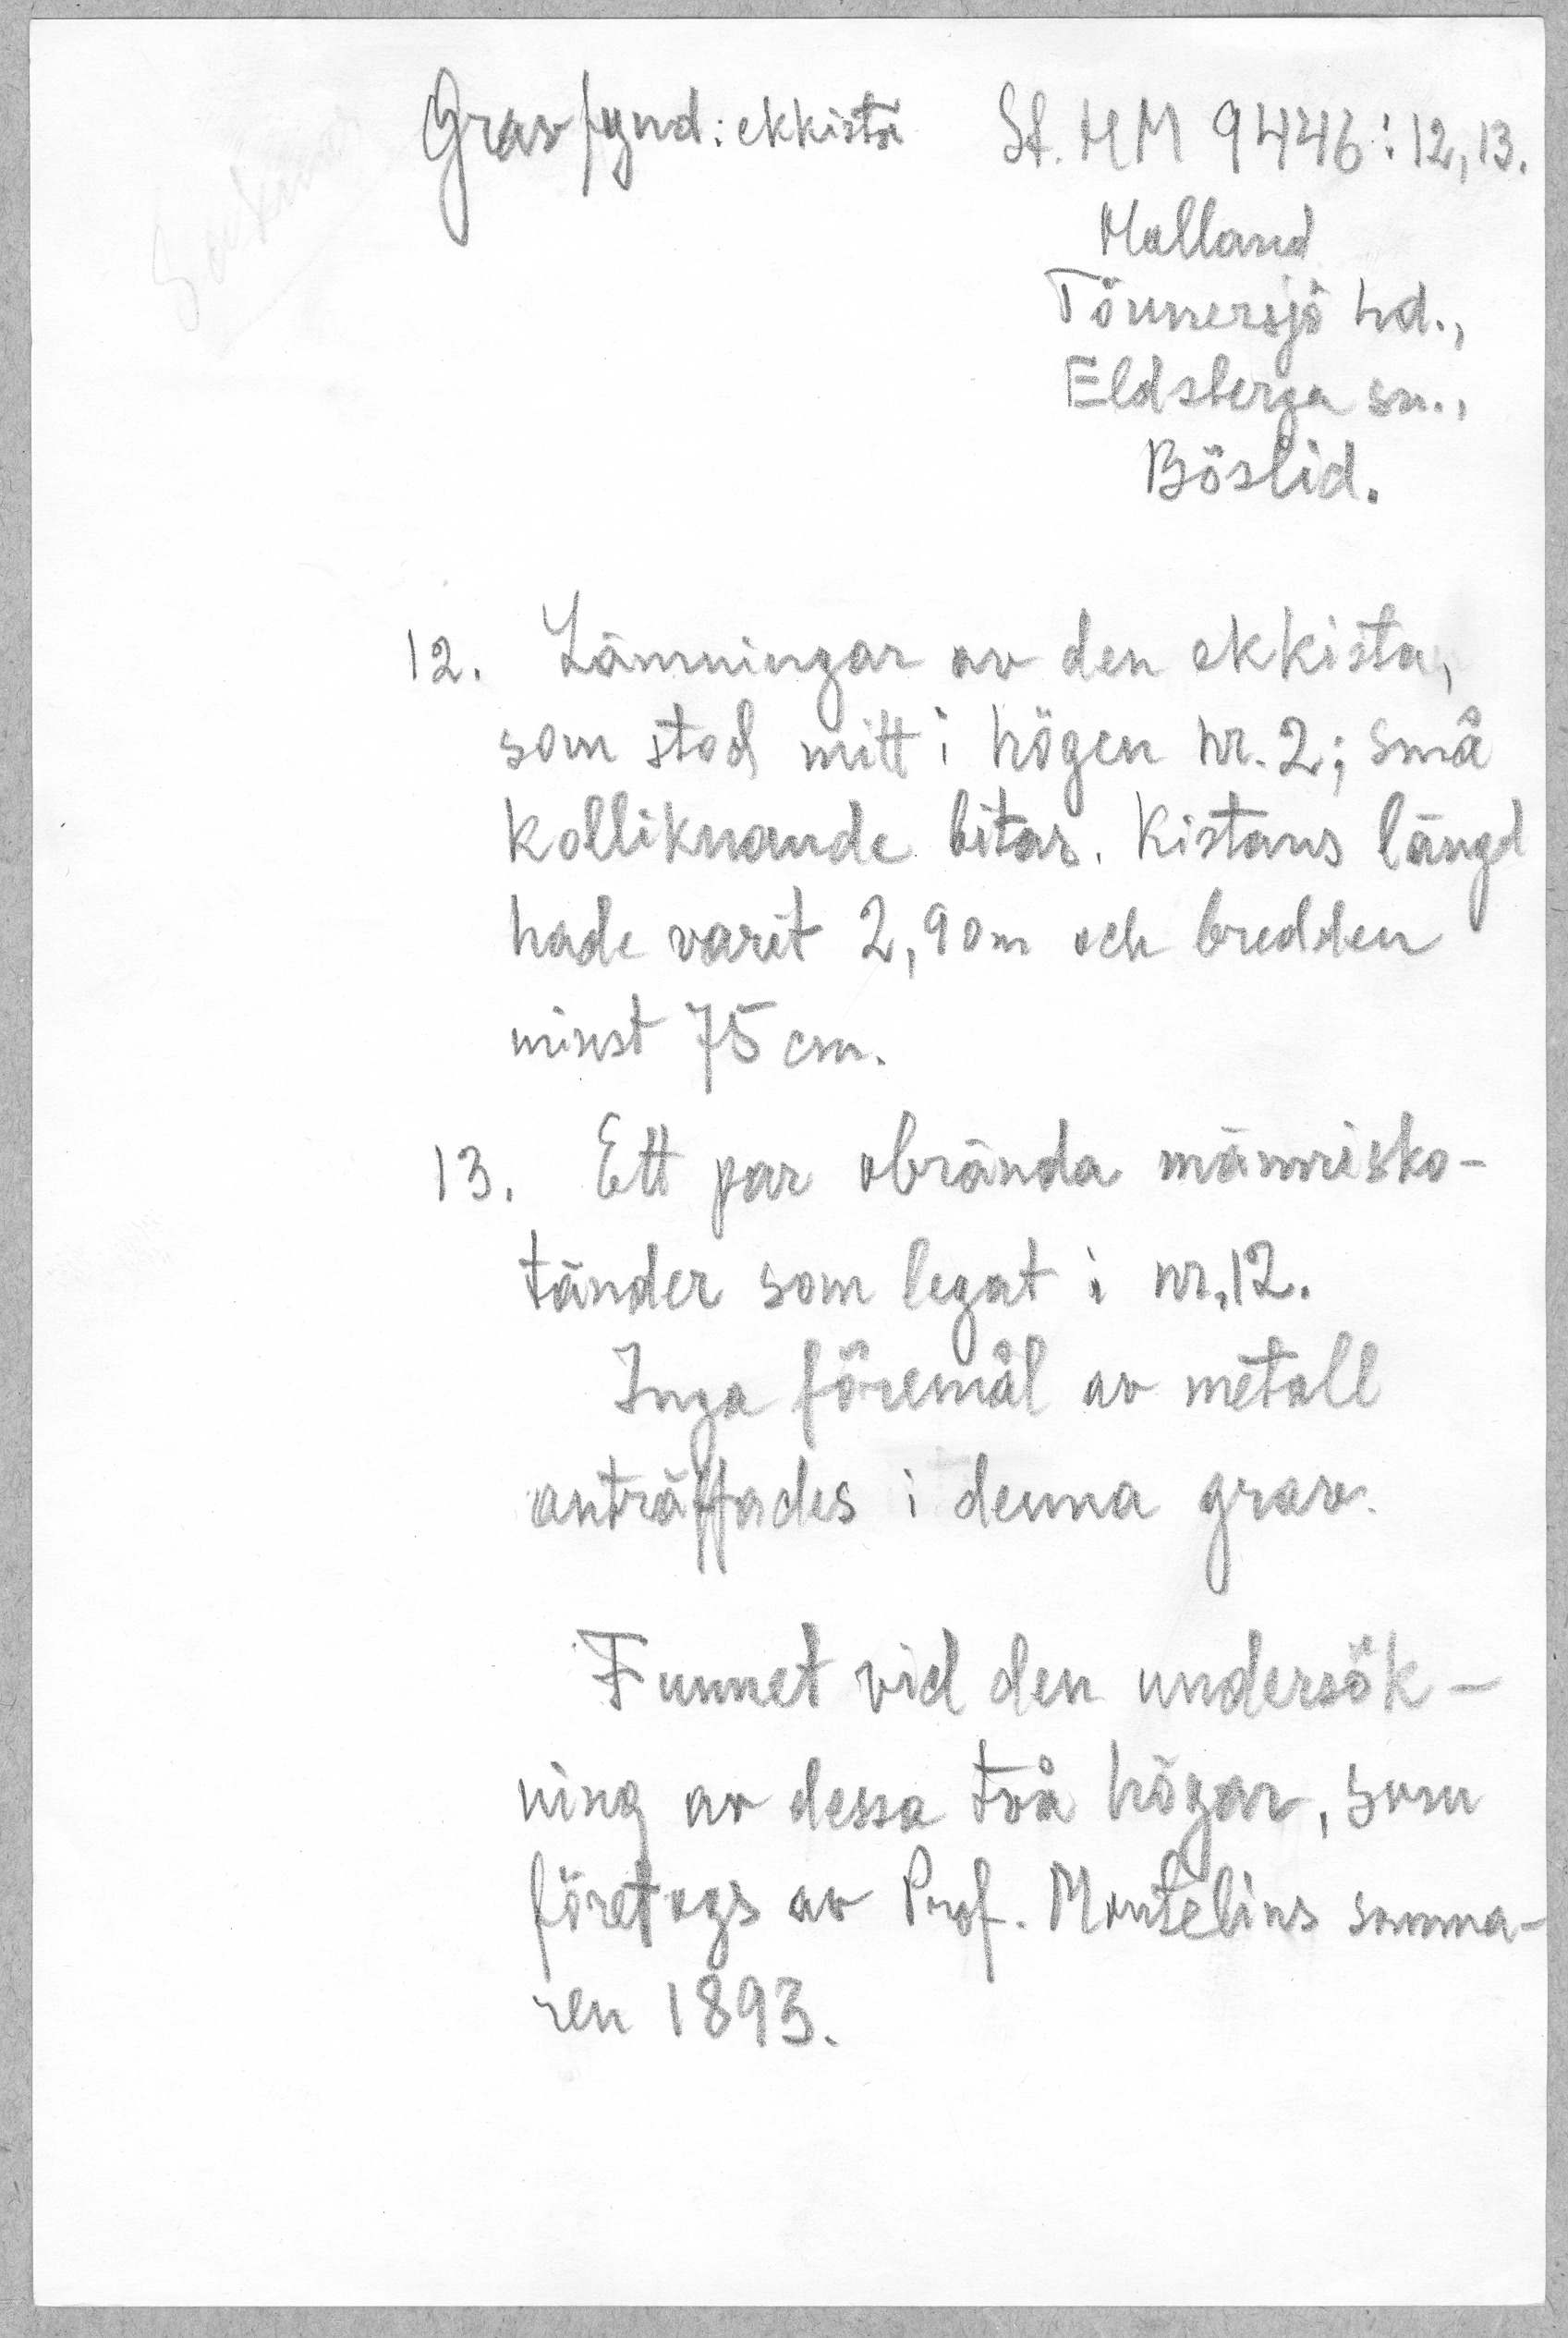 Gravfynd: ekkista St. HM 9446:12,13.
Halland
Tönnersjö hd.,
Eldsberga sn.,
Böslid.
12. Lämningar av den ekkista,
som stod mitt i högen nr. 2; små
kolliknande bitar. Kistans längd
hade varit 2,90m och bredden
minst 75 cm.
13. Ett par obrända människo-
tänder som legat i nr. 12.
Inga föremål av metall
anträffades i denna grav.
Funnet vid den undersök-
ning av dessa två högar, som
företogs av Prof. Montelius somma-
ren 1893.